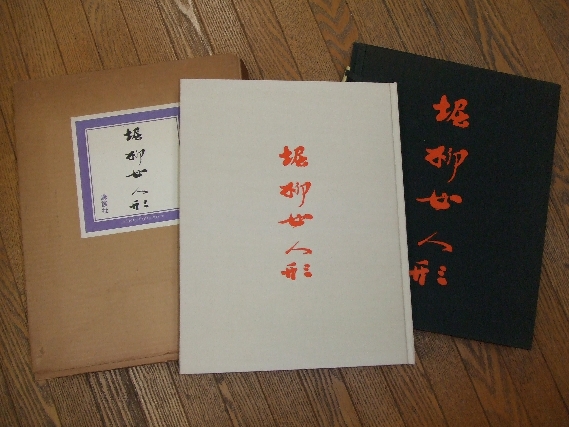 堀柳女人形
講談社
堀柳女人形
堀柳女人形